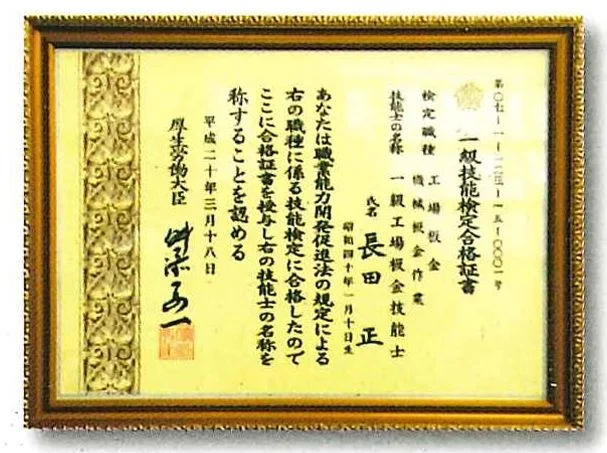 第〇七一-一-一二三-一五-〇〇〇一号
一級技能検定合格証書
検定職種 工場板金
機械板金作業
技能士の名称 一級工場板金技能士
氏名 長田 正
昭和四十年一月十日生
あなたは職業能力開発促進法の規定による
右の職種に係る技能検定に合格したので
ここに合格証書を授与し右の技能士の名称を
称することを認める
平成二十年三月十八日
厚生労働大臣